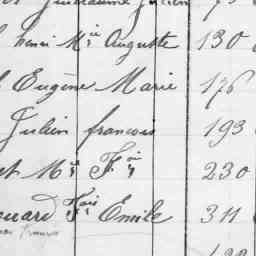 Guillaume Julien
henri Mie Auguste 130
Eugène Marie 176
Julien francois 193
et Mie Fois 230
ouard Fois Emile 311